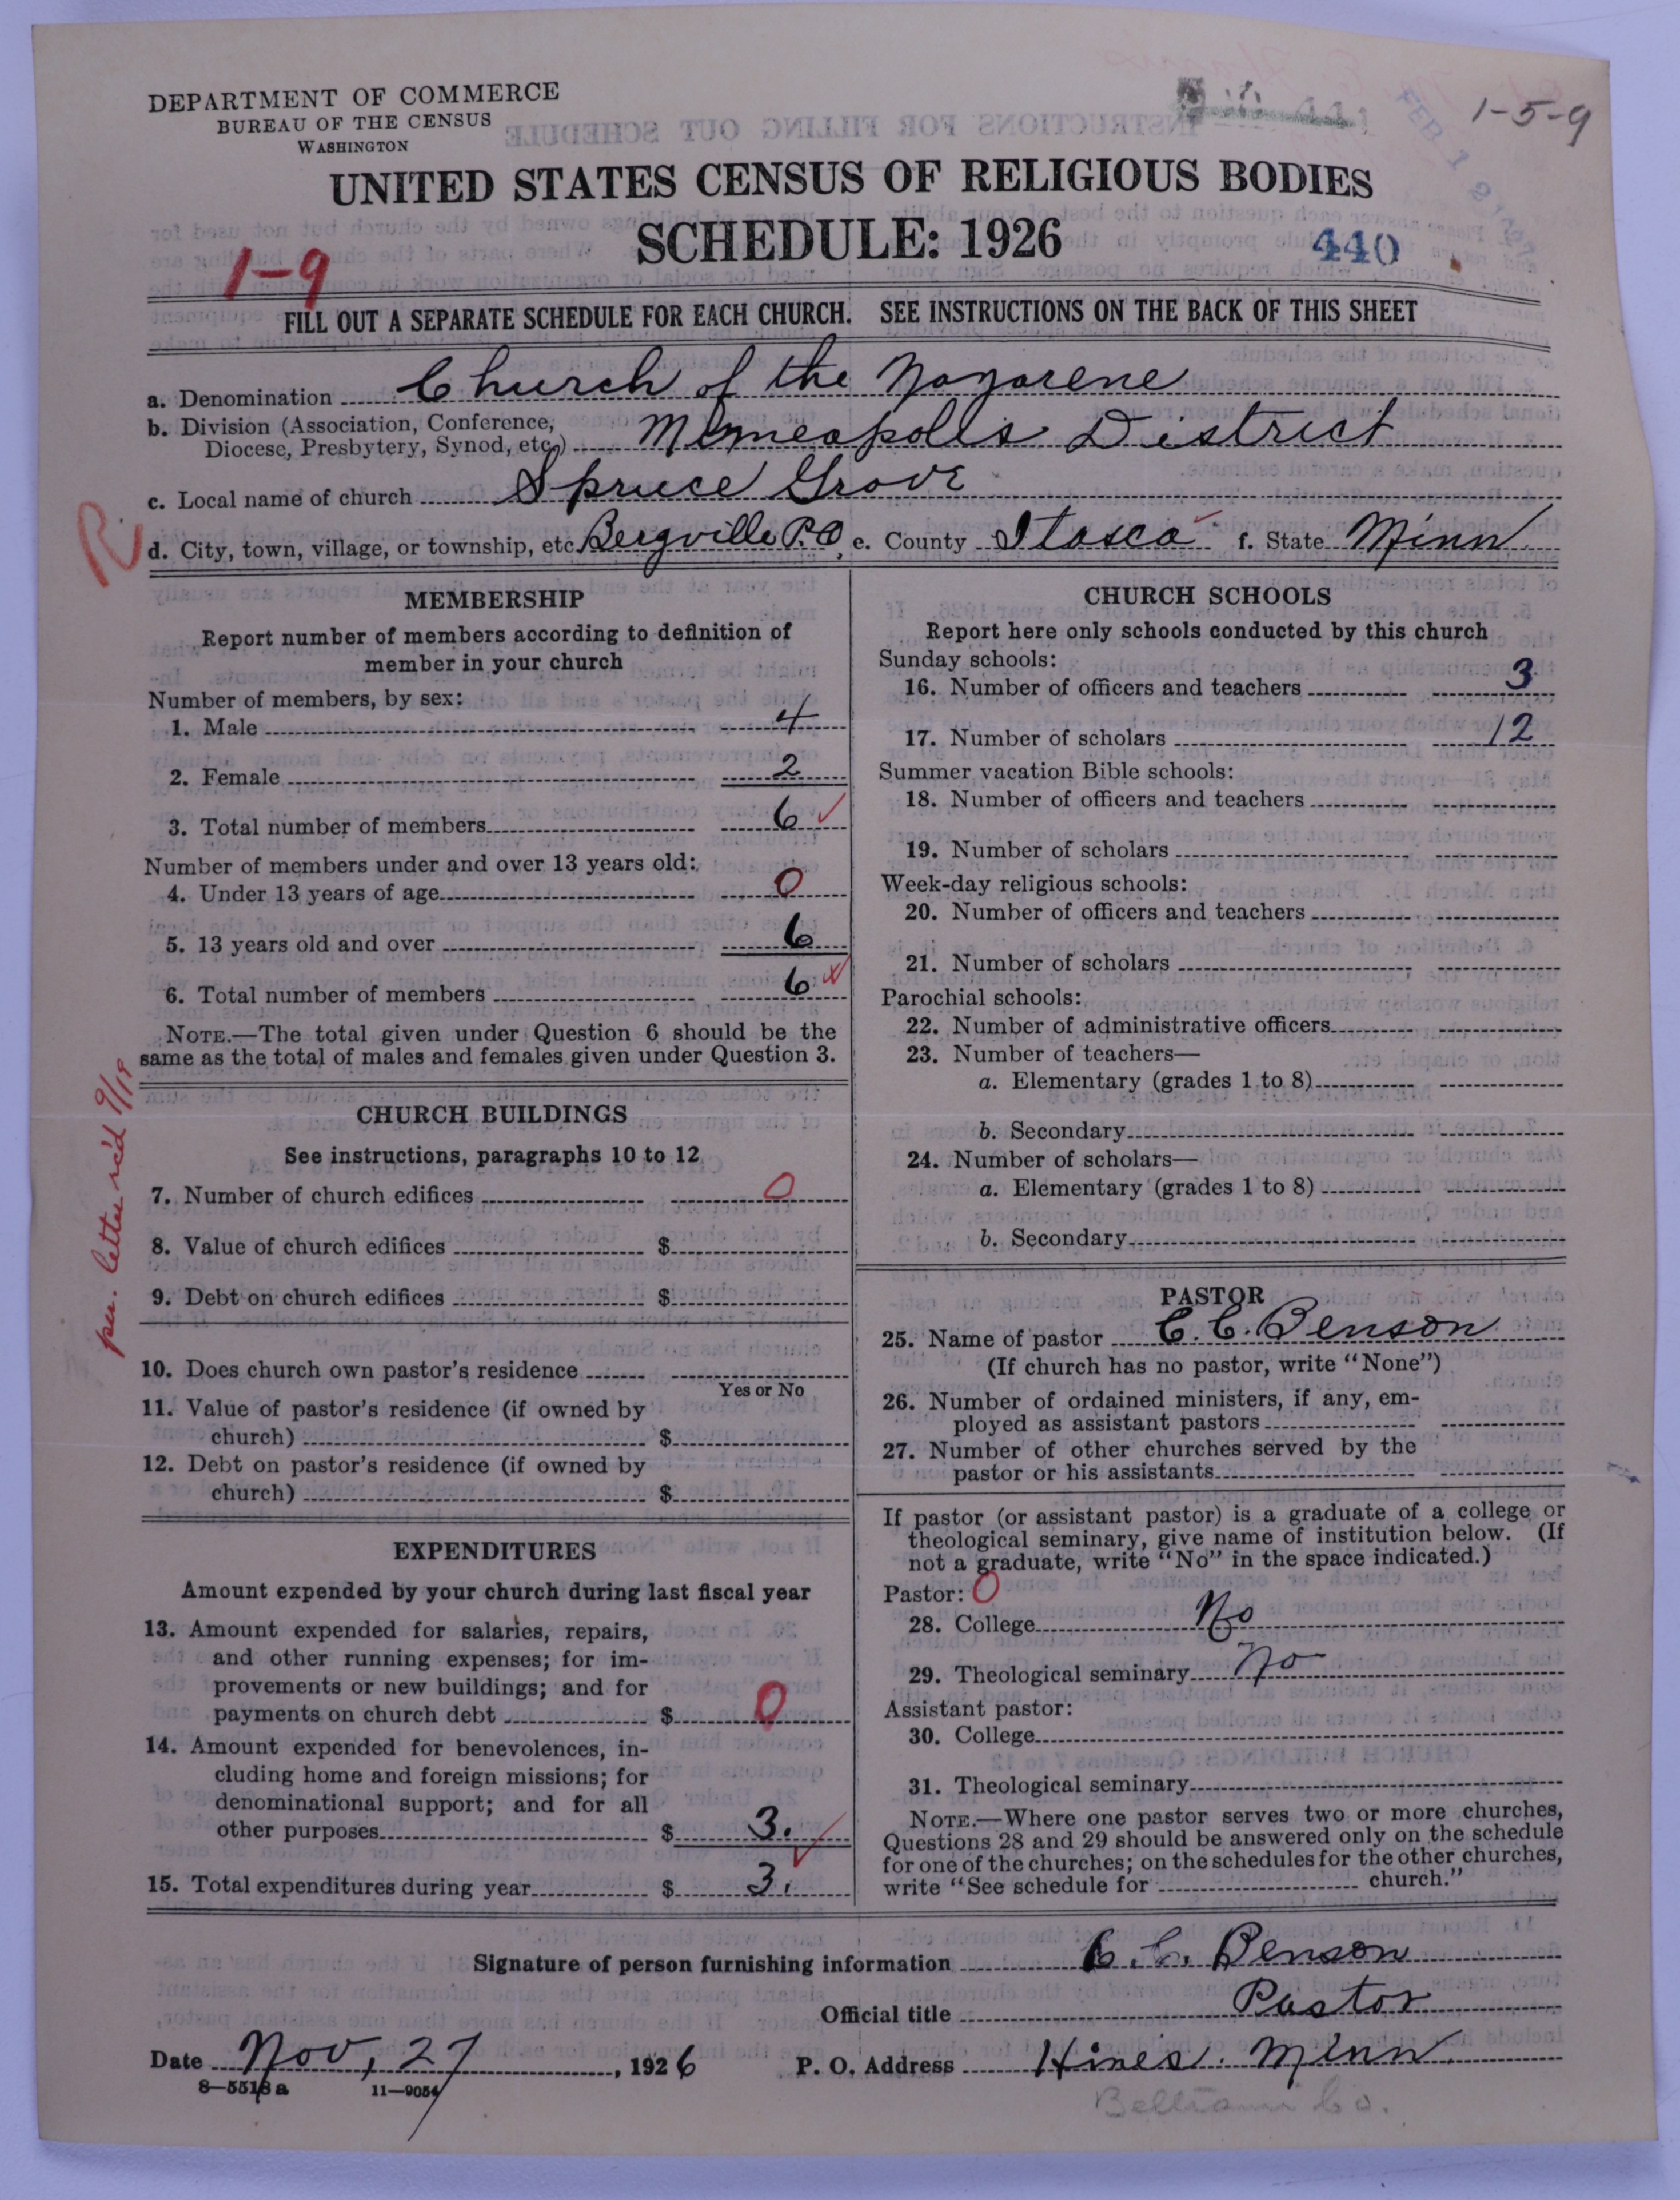 DEPARTMENT OF COMMERCE
BUREAU OF THE CENSUS
WASHINGTON
1-5-9
UNITED STATES CENSUS OF RELIGIOUS BODIES
SCHEDULE: 1926
440
1-9
FILL OUT A SEPARATE SCHEDULE FOR EACH CHURCH. SEE INSTRUCTIONS ON THE BACK OF THIS SHEET
a. Denomination Church of the Nazarene
b. Division (Association, Conference, Diocese, Presbytery, Synod, etc.) Minneapolis District
c. Local name of church Spruce Grove
R. d. City, town, village, or township, etc. Bergville P.O. e. County Itasca f. State Minn
MEMBERSHIP
Report number of members according to definition of
member in your church
Number of members, by sex:
1. Male 4
2. Female 2
3. Total number of members 6
Number of members under and over 13 years old:
4. Under 13 years of age 0
5. 13 years old and over 6
6. Total number of members 6
NOTE.—The total given under Question 6 should be the
same as the total of males and females given under Question 3.
per. letter rec'd 9/19
CHURCH BUILDINGS
See instructions, paragraphs 10 to 12
7. Number of church edifices 0
8. Value of church edifices $
9. Debt on church edifices $
10. Does church own pastor's residence
Yes or No
11. Value of pastor's residence (if owned by
church) $
12. Debt on pastor's residence (if owned by
church) $
EXPENDITURES
Amount expended by your church during last fiscal year
13. Amount expended for salaries, repairs,
and other running expenses; for im-
provements or new buildings; and for
payments on church debt $ 0
14. Amount expended for benevolences, in-
cluding home and foreign missions; for
denominational support; and for all
other purposes $ 3.
15. Total expenditures during year $ 3.
CHURCH SCHOOLS
Report here only schools conducted by this church
Sunday schools:
16. Number of officers and teachers 3
17. Number of scholars 12
Summer vacation Bible schools:
18. Number of officers and teachers
19. Number of scholars
Week-day religious schools:
20. Number of officers and teachers
21. Number of scholars
Parochial schools:
22. Number of administrative officers
23. Number of teachers—
a. Elementary (grades 1 to 8)
b. Secondary
24. Number of scholars—
a. Elementary (grades 1 to 8)
b. Secondary
PASTOR
25. Name of pastor C. C. Benson
(If church has no pastor, write "None")
26. Number of ordained ministers, if any, em-
ployed as assistant pastors
27. Number of other churches served by the
pastor or his assistants
If pastor (or assistant pastor) is a graduate of a college or
theological seminary, give name of institution below. (If
not a graduate, write "No" in the space indicated.)
Pastor: 0
28. College No
29. Theological seminary No
Assistant pastor:
30. College
31. Theological seminary
NOTE.—Where one pastor serves two or more churches,
Questions 28 and 29 should be answered only on the schedule
for one of the churches; on the schedules for the other churches,
write "See schedule for church."
Signature of person furnishing information C. C. Benson
Official title Pastor
Date Nov, 27, 1926 P. O. Address Hines. Minn.
8—5518a 11—9054
Beltrami Co.